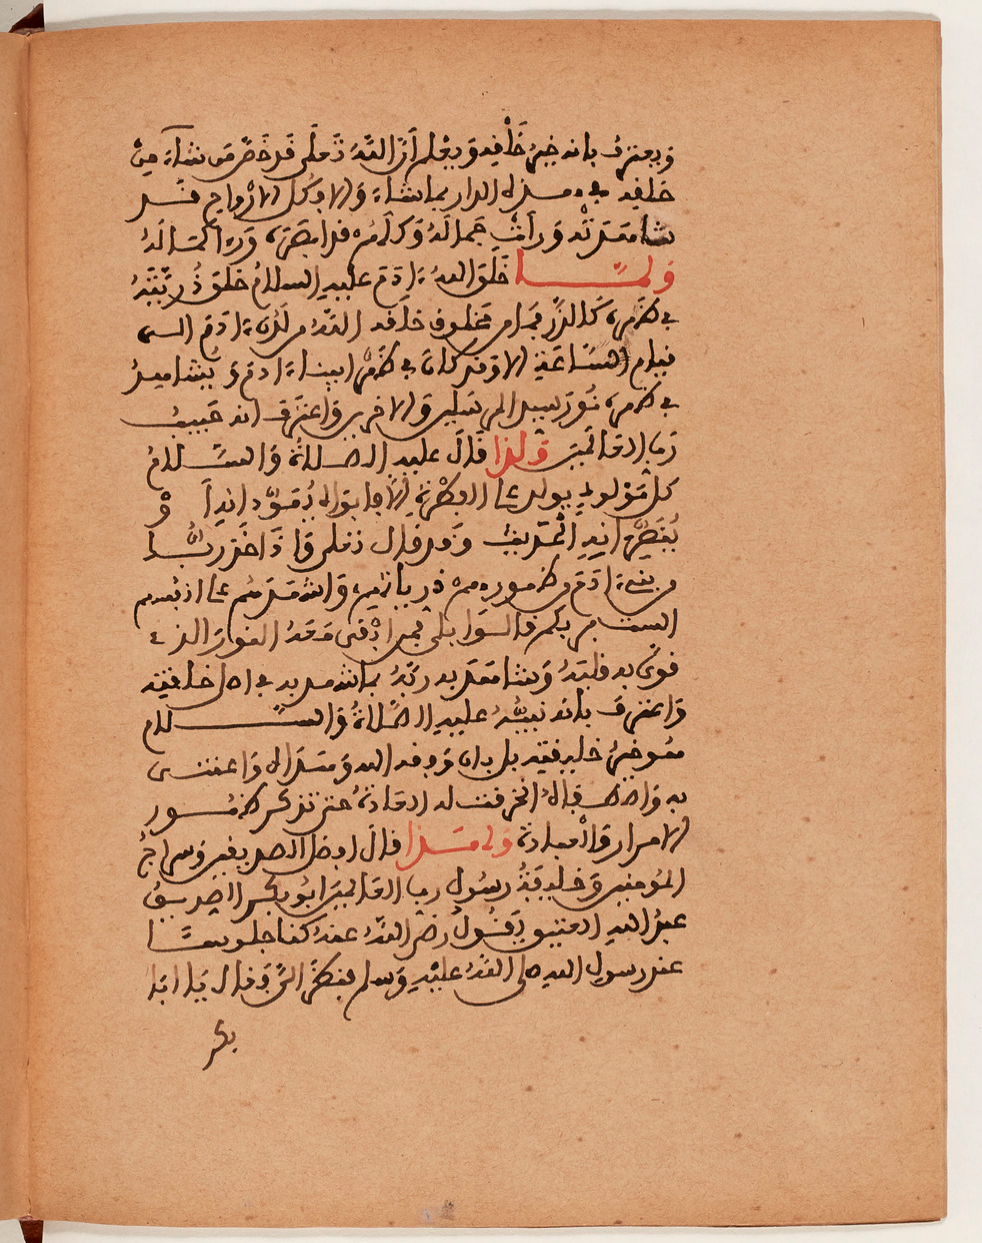 ويعترف بانه خير خلقه ويعلم أن الله تعلى قد خص من شاء من
خلقه في هذه الدار بما شاء والا فكل الارواح قد
شاهدته ورأت جماله وكلامه
ولما خلق الله ءادم عليه السلام خلق ذريته
في ظهره كالذر فما من مخلوق خلقه الله من لدن ءادم الى
قيام الساعة الا وقد كان في ظهر ابينا ءادم ويشاهد
في ظهره نور سيد المرسلين والاخرين واعترف انه حبيب
رب العالمين ولذا قال عليه الصلاة والسلام
كل مولود يولد على الفطرة الا فابواه يهودانه أو
ينصرانه الحديث وقد قال تعلى وإذ اخذ ربك
من بني ءادم من ظهورهم ذرياتهم واشهدهم على انفسهم
الست بربكم قالوا بلى فمن ابقى معه النور الذي
قوي به قلبه وشاهد به ربه بما شهد به في اصل خلقته
واعترف بأنه نبيه عليه الصلاة والسلام
فهو خير خليقته بل بان وفقه الله وهداه واعتنى
به واصطفاه انخرقت له العادة حتى تذكر ظهور
الاسرار والعبادة ولهذا قال افضل الصديقين وسراج
المومنين وخليفة رسول رب العالمين ابو بكر الصديق
عبد الله العتيق يقول رضي الله عنه كنا جلوسا
عند رسول الله صلى الله عليه وسلم فنظر الي وقال يا ابا
بكر